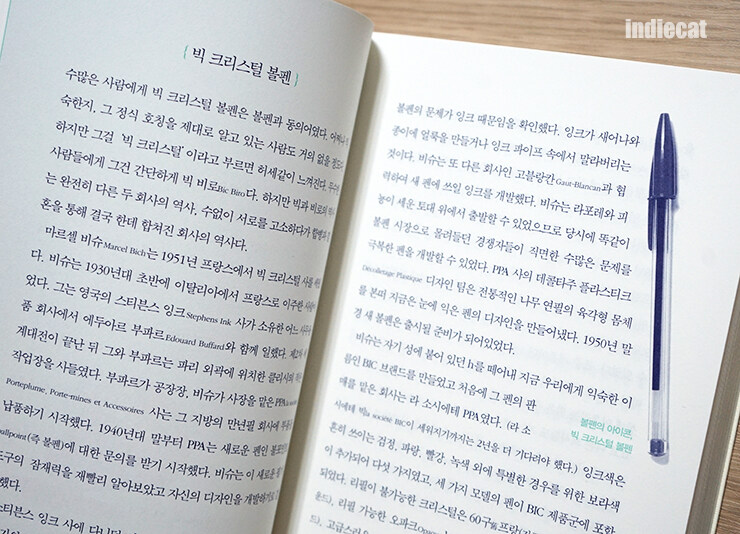 indiecat
{ 빅 크리스털 볼펜 }
수많은 사람에게 빅 크리스털 볼펜은 볼펜과 동의어였다.
숙한지, 그 정식 호칭을 제대로 알고 있는 사람도 거의 없을
하지만 그걸 '빅 크리스털'이라고 부르면 허세같이 느껴진다.
사람들에게 그건 간단하게 빅 비로Bic Biro다. 하지만 빅과 비로의
는 완전히 다른 두 회사의 역사, 수없이 서로를 고소하다가
혼을 통해 결국 한데 합쳐진 회사의 역사다.
마르셀 비슈Marcel Bich는 1951년 프랑스에서 빅 크리스털
다. 비슈는 1930년대 초반에 이탈리아에서 프랑스로 이주한
었다. 그는 영국의 스티븐스 잉크Stephens Ink 사가 소유한 어느
품 회사에서 에두아르 부파르Edouard Buffard와 함께 일했다. 제2차
계대전이 끝난 뒤 그와 부파르는 파리 외곽에 위치한 클리시의
작업장을 사들였다. 부파르가 공장장, 비슈가 사장을 맡은 PPA
Porteplume, Porte-mines et Accessoires 사는 그 지방의 만년필 회사에
납품하기 시작했다. 1940년대 말부터 PPA는 새로운 펜인
ballpoint(즉 볼펜)에 대한 문의를 받기 시작했다. 비슈는 이 새로운
도구의 잠재력을 재빨리 알아보았고 자신의 디자인을 개발하기로
스티븐스 잉크 사에 다니던
볼펜의 문제가 잉크 때문임을 확인했다. 잉크가 새어나와
종이에 얼룩을 만들거나 잉크 파이프 속에서 말라버리는
것이다. 비슈는 또 다른 회사인 고블랑칸Gaut-Blancan과 협
력하여 새 펜에 쓰일 잉크를 개발했다. 비슈는 라포레와 피
놀이 세운 토대 위에서 출발할 수 있었으므로 당시에 똑같이
볼펜 시장으로 몰려들던 경쟁자들이 직면한 수많은 문제를
극복한 펜을 개발할 수 있었다. PPA 사의 데콜타주 플라스티크
Décolletage Plastique 디자인 팀은 전통적인 나무 연필의 육각형 몸체
를 본떠 지금은 눈에 익은 펜의 디자인을 만들어냈다. 1950년 말
경 새 볼펜은 출시될 준비가 되어있었다.
비슈는 자기 성에 붙어 있던 h를 떼어내 지금 우리에게 익숙한 이
름인 BIC 브랜드를 만들었고 처음에 그 펜의 판
매를 맡은 회사는 라 소시에테 PPA였다. (라 소
시에테 빅la société BIC이 세워지기까지는 2년을 더 기다려야 했다.) 잉크색은
흔히 쓰이는 검정, 파랑, 빨강, 녹색 외에 특별한 경우를 위한 보라색
이 추가되어 다섯 가지였고, 세 가지 모델의 펜이 BIC 제품군에 포함
리필이 불가능한 크리스털은 60구舊프랑
리필 가능한 오파크
고급스러
볼펜의 아이콘,
빅 크리스털 볼펜